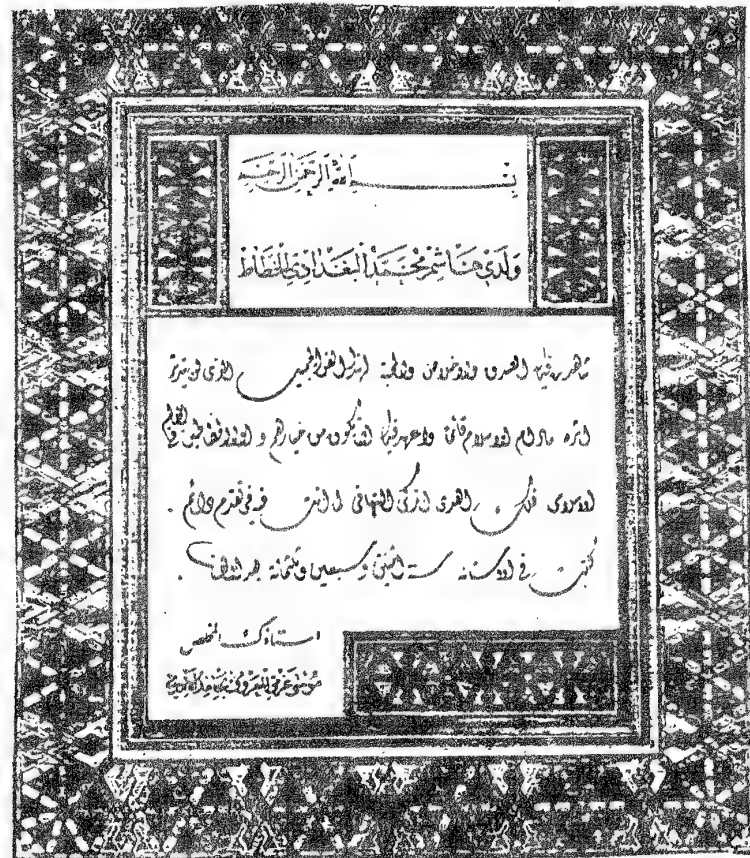 بسم الله الرحمن الرحيم
ولدي هاشم محمد البغدادي الخطاط
شاهدت فيك الصدق والاخلاص والمحبة لهذا الفن الجميل الذي لن
اثره مادام الاسلام قائما واعهد فيك ان تكون من خيارهم و في العالم
الاسلامي فلك اهدي ازكى التهاني لما انت فيه في تقدم دائم .
كتبت في الاستانه سنة اثنين وسبعين وثلثمائة بعد الالف .
استاذك المخلص
موسى عزمي المعروف بحامد الآمدي